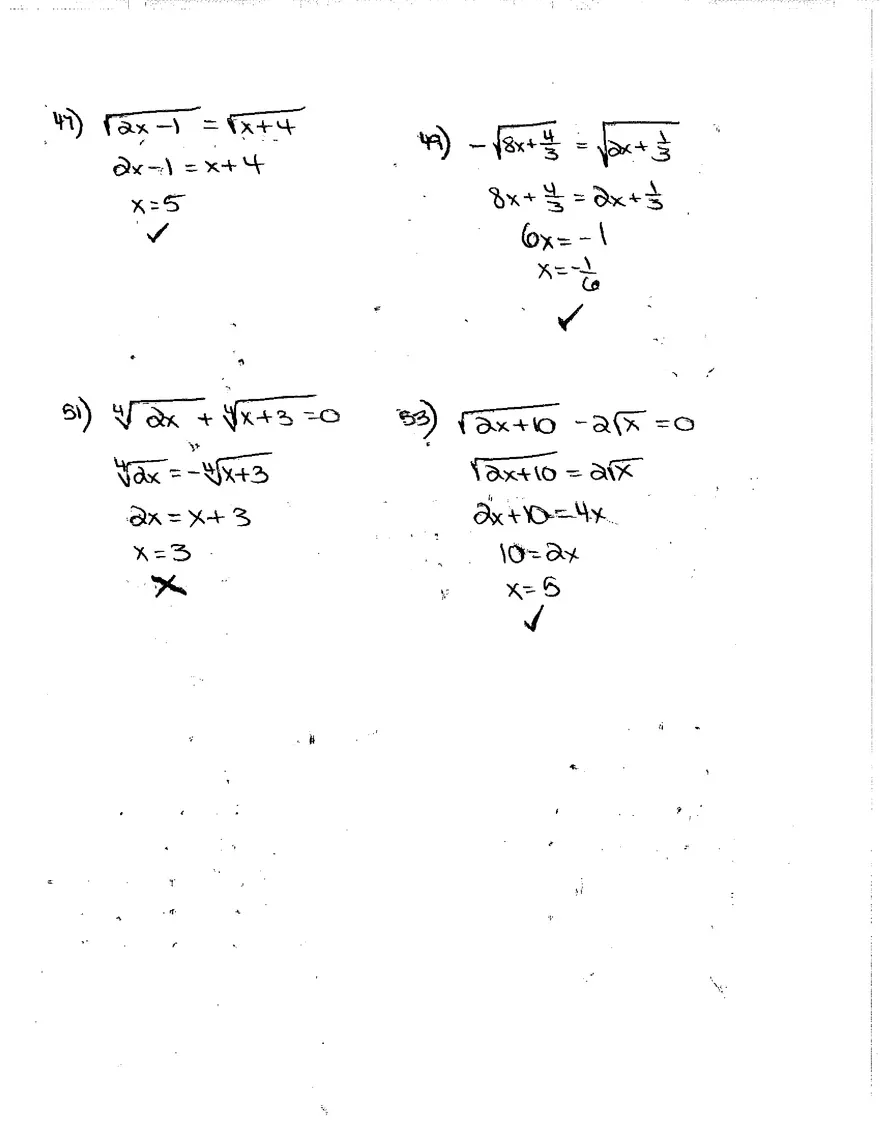 47) √(2x-1) = √(x+4)
2x-1 = x+4
x=5
✓
49) -√(8x+4/3) = √(2x+1/3)
8x+4/3 = 2x+1/3
6x=-1
x=-1/6
✓
51) ∜(2x) + ∜(x+3) =0
∜(2x) = -∜(x+3)
2x = x+3
x=3
X
53) √(2x+10) -2√x =0
√(2x+10) = 2√x
2x+10=4x
10=2x
x=5
✓